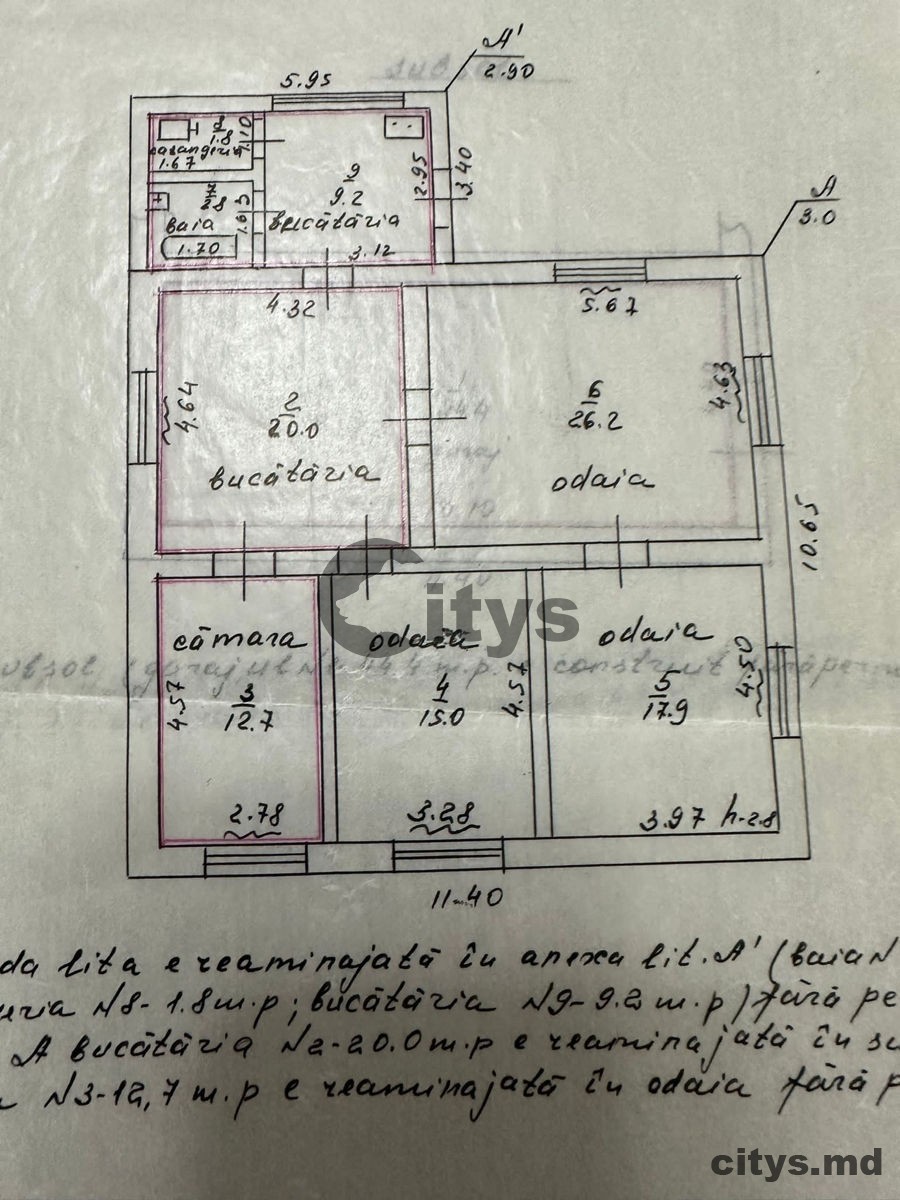 A'
2.90
5.95
8
1.8
cazangeria
1.67
1.10
7
2.8
baia
1.63
1.70
9
9.2
bucătăria
2.95
3.40
3.12
A
3.0
4.32
5.67
4.64
2
20.0
bucătăria
6
26.2
odaia
4.63
10.65
Citys
cămara
3
12.7
4.57
2.78
odaia
4
15.0
4.57
3.28
odaia
5
17.9
4.50
3.97 h-2.8
11.40
da lita e reaminajată în anexa lit. A' (baia N
eria N8-1.8 m.p; bucătăria N9-9.2 m.p) fără pe
A bucătăria N2-20.0 m.p e reaminajată în su
N3-12,7 m.p e reaminajată în odaia fără p
citys.md